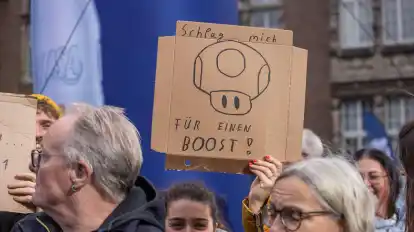 Schlag mich
FÜR EINEN
BOOST!